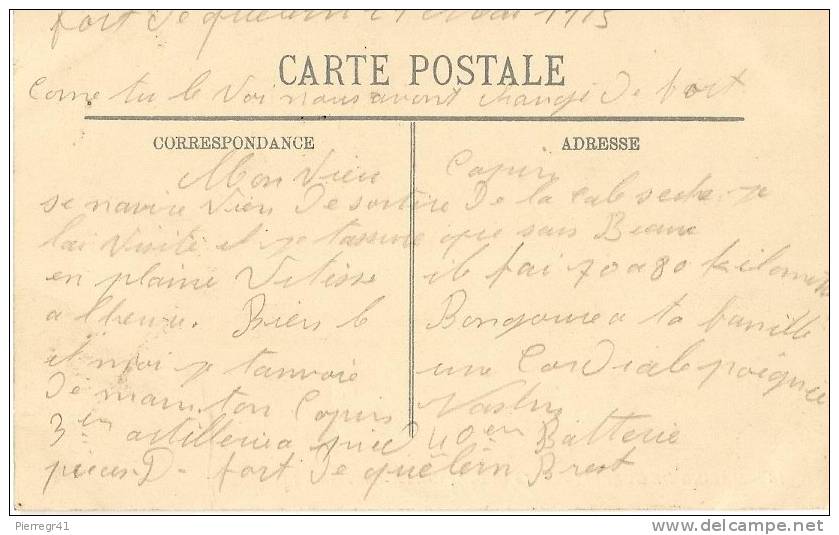 fort de quélern 21 Mai 1915
CARTE POSTALE
Come tu le Voi nous avont changé de fort
CORRESPONDANCE
ADRESSE
Mon Vieu Copin
se navire Vien de sortire De la cale seche je
lai Visité et je tassure que sais Beau
en plaine Vitesse il fai 70 a 80 kilometre
a lheure. Bien le Bongoure a ta famille
et moi je tanvoie une Cordiale poignée
De main ton Copin
3em artillerie a pied 40em Batterie
pieces D- fort De quélérn Brest
Pierregr41
delcampe.net